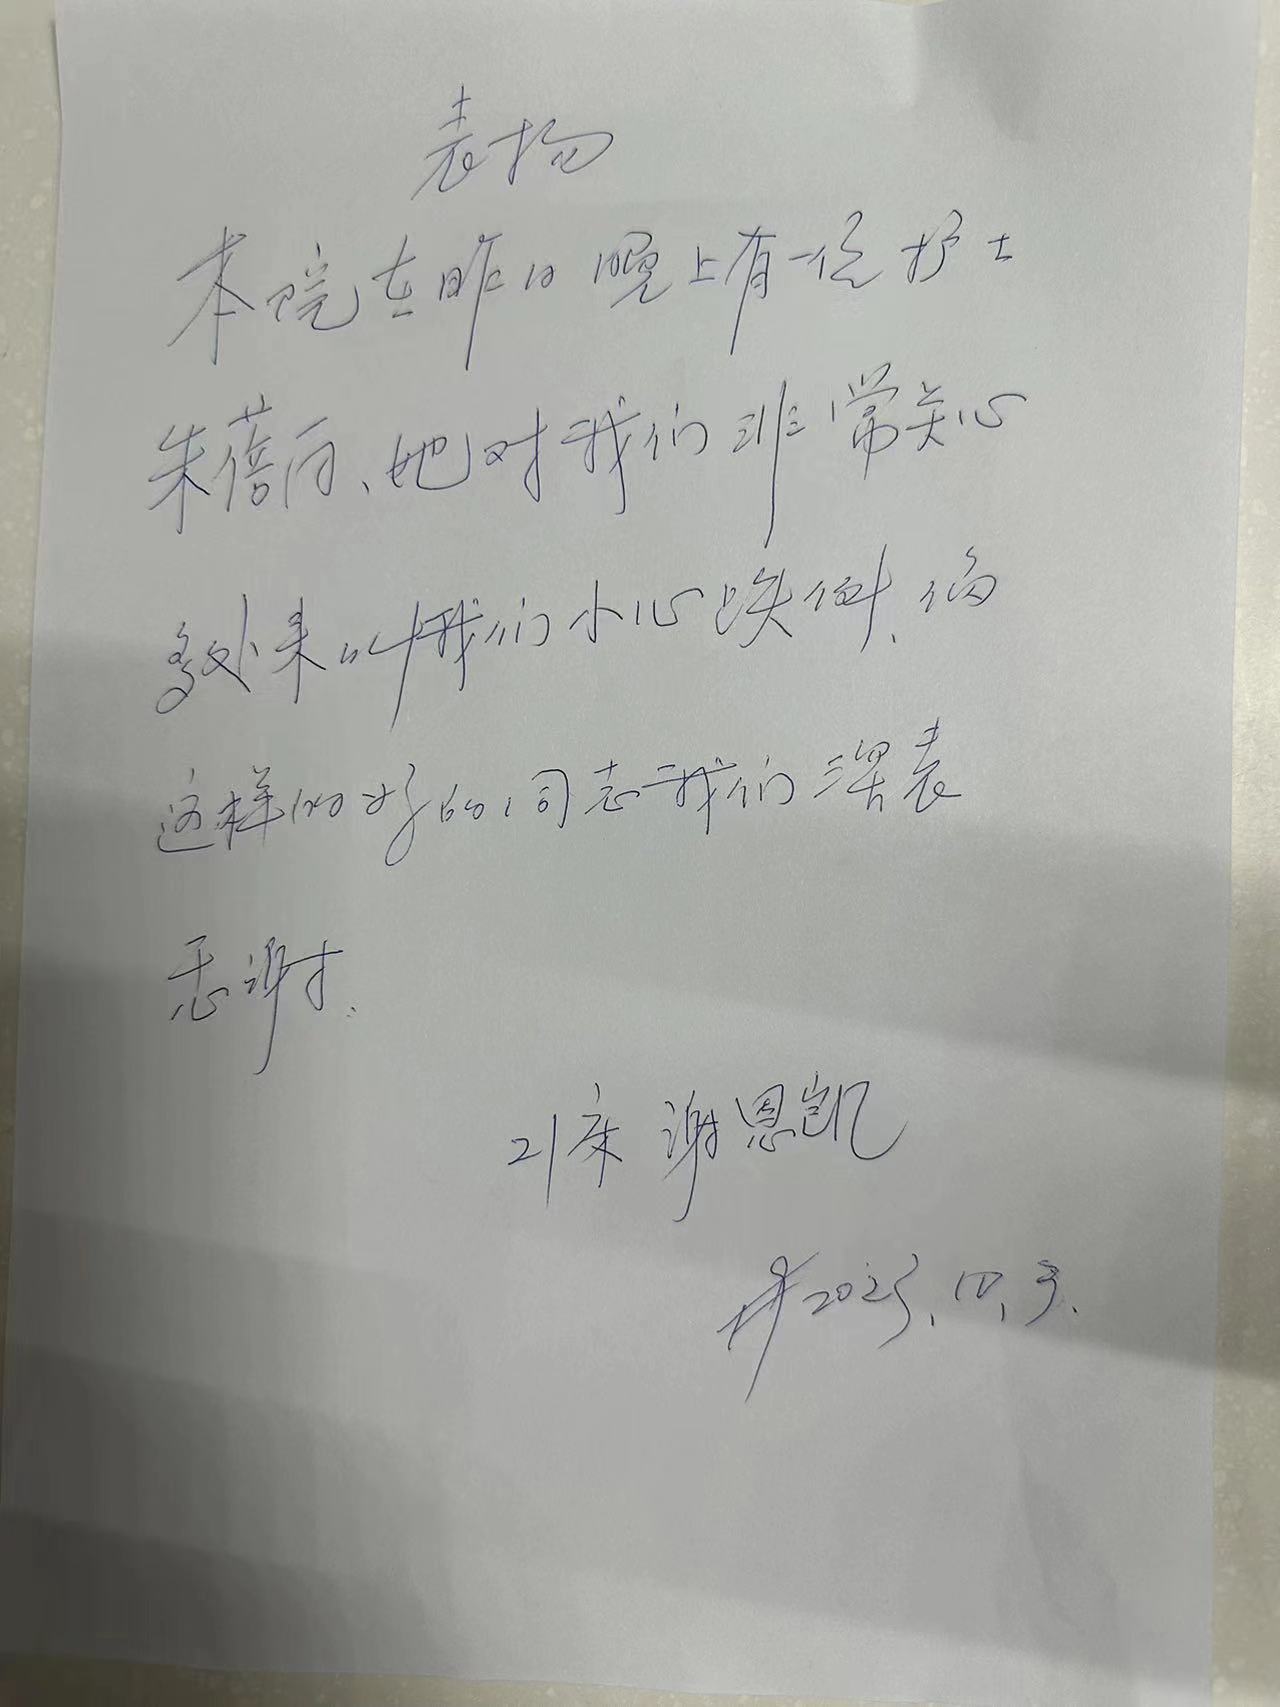 表扬
本院在昨日晚上有一位护士
朱蓓，她对我们非常关心
多处来叫我们小心跌倒、像
这样的好的同志我们深表
感谢.
21床 谢恩凯
2023.10.3.